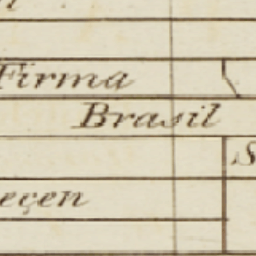 Firma
Brasil
S
eçen